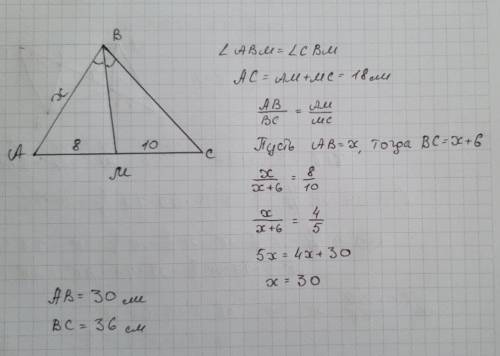 B
x
A 8 10 C
M
∠ABM = ∠CBM
AC = AM + MC = 18 см
AB/BC = AM/MC
Пусть AB = x, тогда BC = x + 6
x/(x+6) = 8/10
x/(x+6) = 4/5
5x = 4x + 30
x = 30
AB = 30 см
BC = 36 см